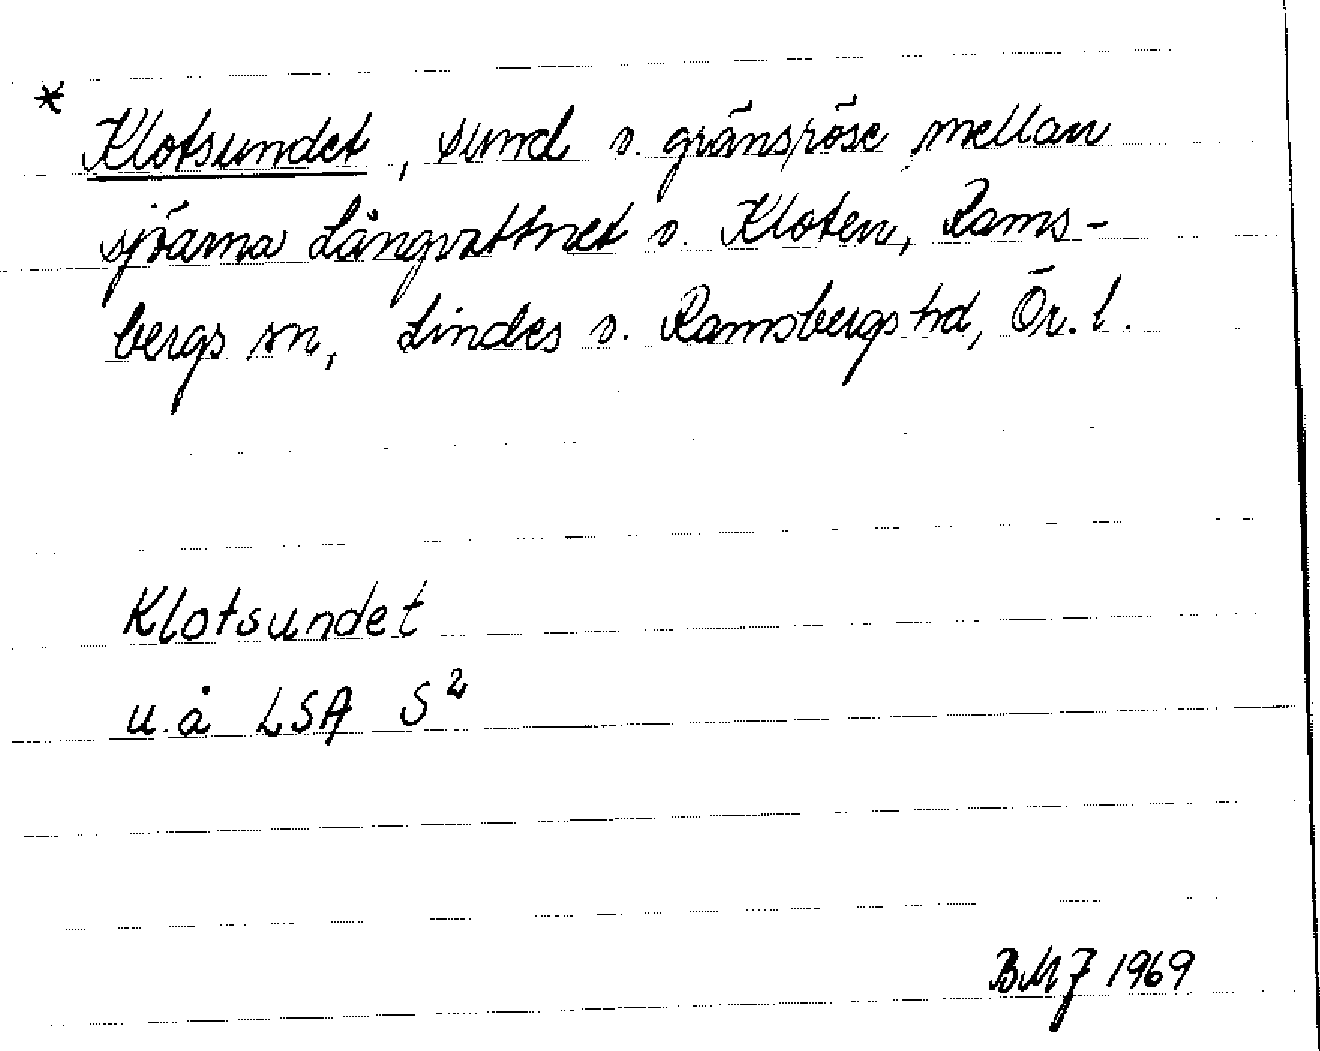 * Klotsundet, sund o. gränsröse mellan
sjöarna Långvattnet o. Kloten, Rams-
bergs sn, Lindes o. Ramsbergs hd, Ör. l.
Klotsundet
u. å LSA S²
BMJ 1969